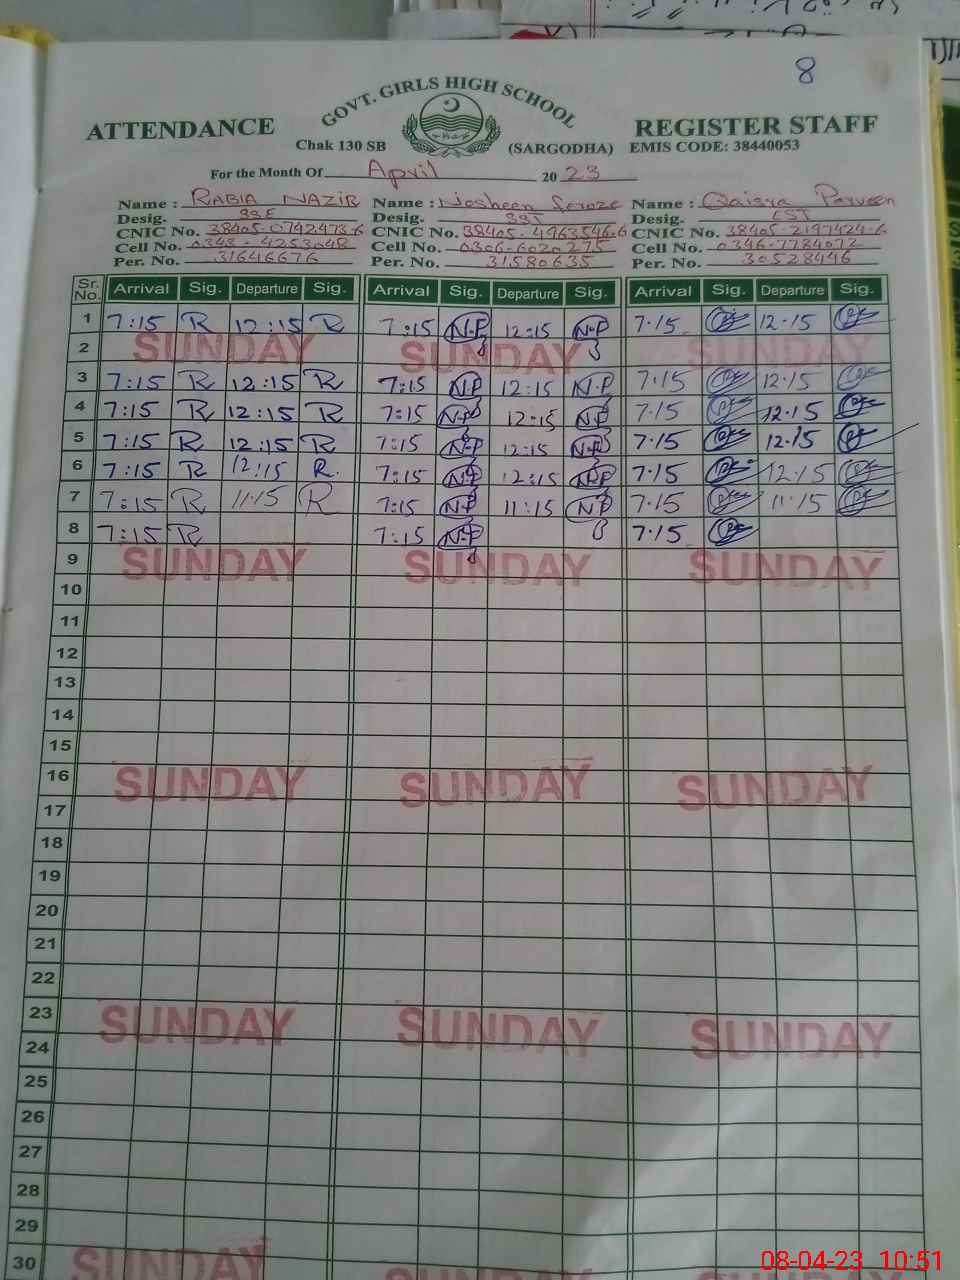 8
GOVT. GIRLS HIGH SCHOOL
ATTENDANCE REGISTER STAFF
Chak 130 SB (SARGODHA) EMIS CODE: 38440053
For the Month Of April 20 23
Name : RABIA NAZIR Name : Nosheen Feroze Name : Qaisra Parveen
Desig. SSE Desig. SST Desig. EST
CNIC No. 38405-0742473-6 CNIC No. 38405-4963546-6 CNIC No. 38405-2197424-6
Cell No. 0343-4253048 Cell No. 0306-6020275 Cell No. 0346-7784072
Per. No. 31646676 Per. No. 31580635 Per. No. 30528446
Sr. No. Arrival Sig. Departure Sig. Arrival Sig. Departure Sig. Arrival Sig. Departure Sig.
1 7:15 R 12:15 R 7:15 N.F 12:15 N.F 7.15 12.15
2 SUNDAY SUNDAY SUNDAY
3 7:15 R 12:15 R 7:15 N.F 12:15 N.F 7.15 12.15
4 7:15 R 12:15 R 7:15 N.F 12:15 N.F 7.15 12.15
5 7:15 R 12:15 R 7:15 N.F 12:15 N.F 7.15 12.15
6 7:15 R 12:15 R. 7:15 N.F 12:15 N.F 7.15 12.15
7 7:15 R 11:15 R 7:15 N.F 11:15 N.F 7.15 11.15
8 7:15 R 7:15 N.F 7.15
9 SUNDAY SUNDAY SUNDAY
10
11
12
13
14
15
16 SUNDAY SUNDAY SUNDAY
17
18
19
20
21
22
23 SUNDAY SUNDAY SUNDAY
24
25
26
27
28
29
30 SUNDAY SUNDAY SUNDAY
08-04-23 10:51